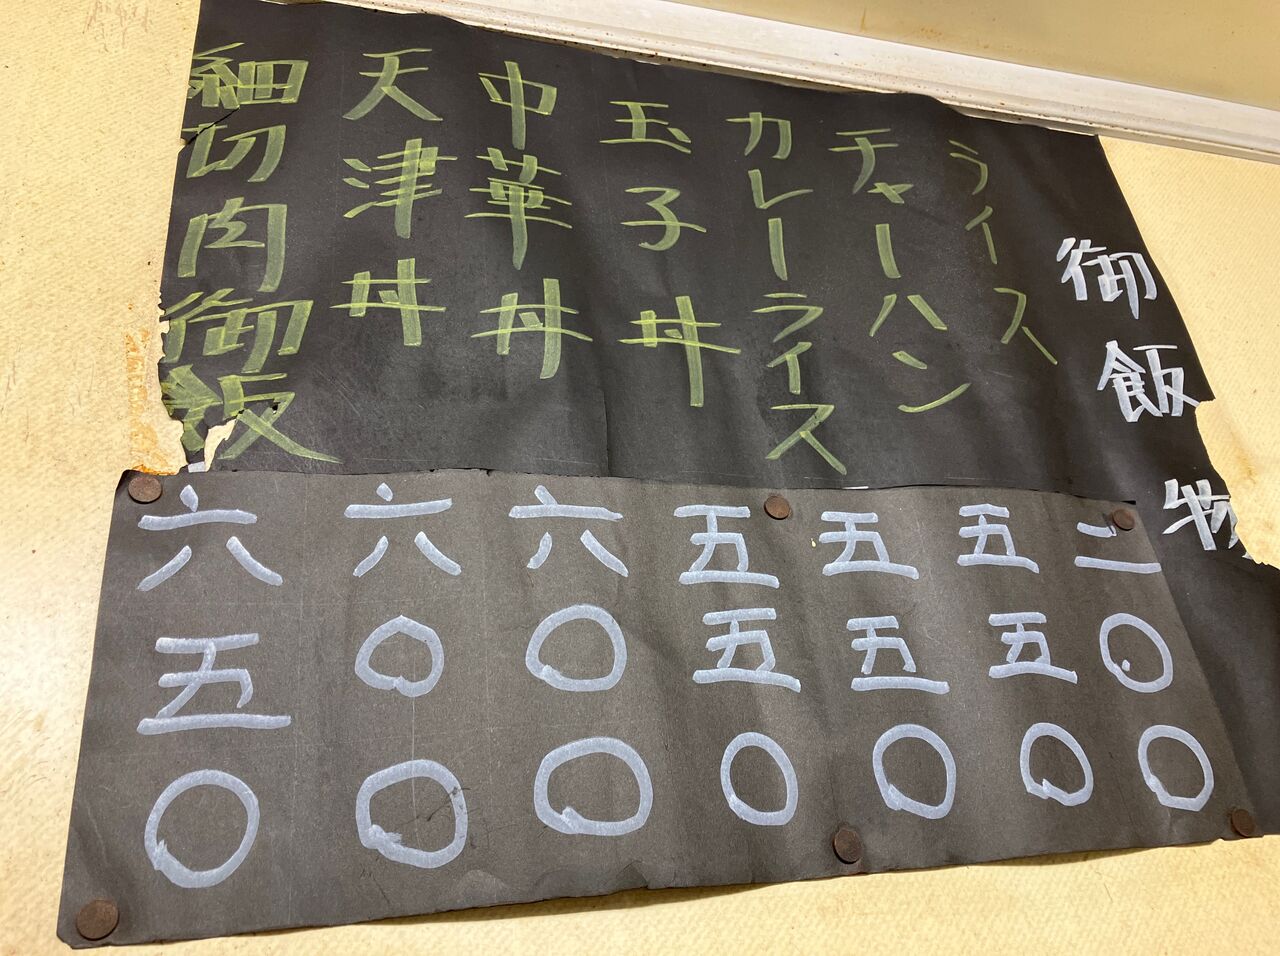 御飯物
ライス 二〇〇
チャーハン 五五〇
カレーライス 五五〇
玉子丼 五五〇
中華丼 六〇〇
天津丼 六〇〇
細切肉御飯 六五〇